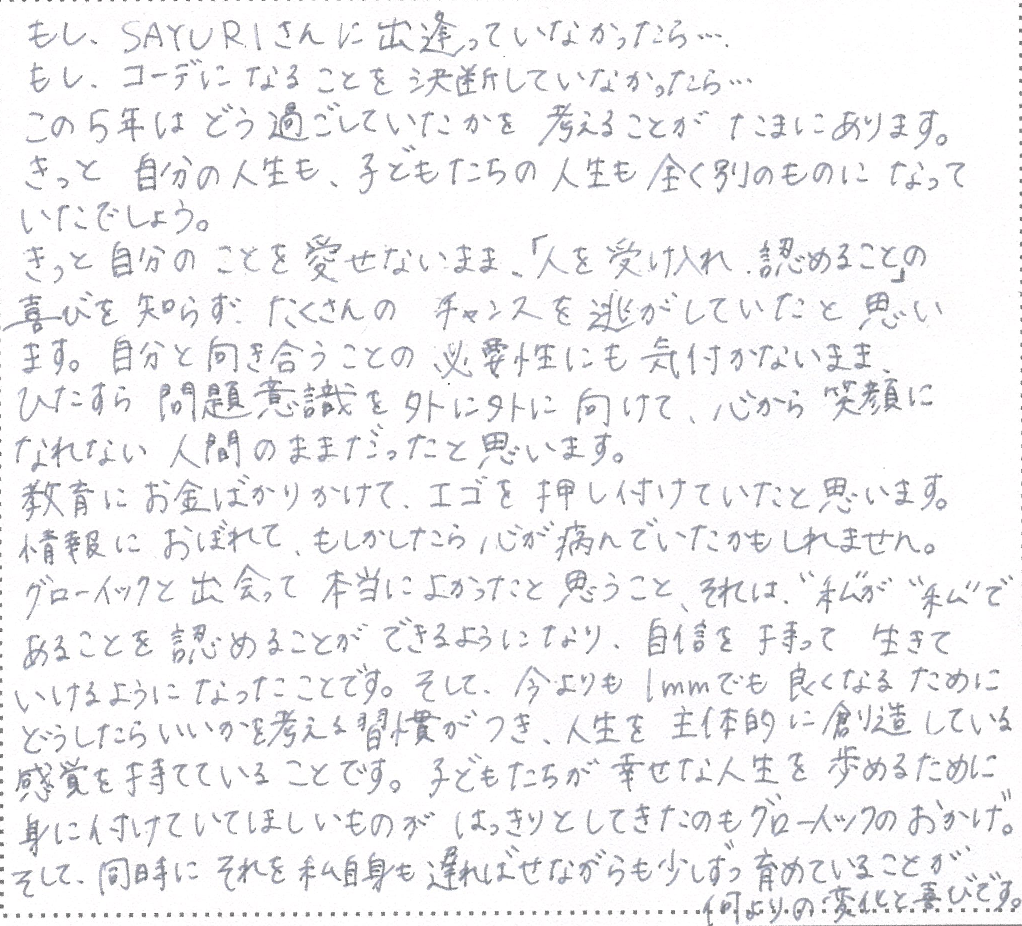 もし、SAYURIさんに出逢っていなかったら…
もし、コーデになることを決断していなかったら…
この5年はどう過ごしていたかを考えることがたまにあります。
きっと自分の人生も、子どもたちの人生も全く別のものになって
いたでしょう。
きっと自分のことを愛せないまま、「人を受け入れ、認めること」の
喜びを知らず、たくさんのチャンスを逃がしていたと思い
ます。自分と向き合うことの必要性にも気付かないまま、
ひたすら問題意識を外に外に向けて、心から笑顔に
なれない人間のままだったと思います。
教育にお金ばかりかけて、エゴを押し付けていたと思います。
情報におぼれて、もしかしたら心が病んでいたかもしれません。
グローイックと出会って本当によかったと思うこと、それは、“私”が“私”で
あることを認めることができるようになり、自信を持って生きて
いけるようになったことです。そして、今よりも1mmでも良くなるために
どうしたらいいかを考える習慣がつき、人生を主体的に創造している
感覚を持てていることです。子どもたちが幸せな人生を歩めるために
身に付けていてほしいものがはっきりとしてきたのもグローイックのおかげ。
そして、同時にそれを私自身も遅ればせながらも少しずつ育めていることが
何よりの変化と喜びです。